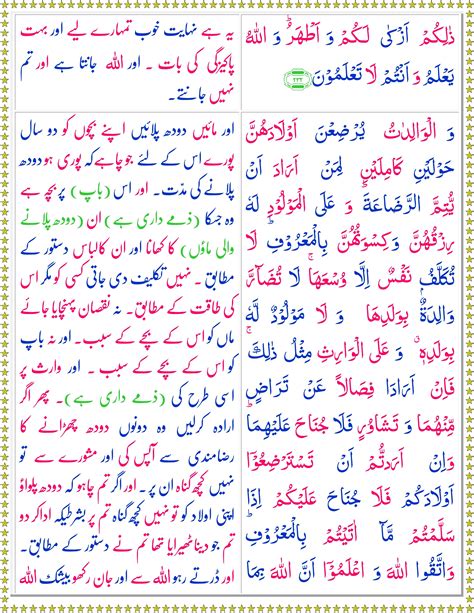 ذٰلِكُمْ اَزْكٰى لَكُمْ وَ اَطْهَرُ ؕ وَ اللّٰهُ
يَعْلَمُ وَ اَنْتُمْ لَا تَعْلَمُوْنَ ۝۲۳۲
یہ ہے نہایت خوب تمہارے لیے اور بہت
پاکیزگی کی بات ۔ اور اللہ جانتا ہے اور تم
نہیں جانتے۔
وَ الْوَالِدٰتُ يُرْضِعْنَ اَوْلَادَهُنَّ
حَوْلَيْنِ كَامِلَيْنِ لِمَنْ اَرَادَ اَنْ
يُّتِمَّ الرَّضَاعَةَ ؕ وَ عَلَى الْمَوْلُوْدِ لَهٗ
رِزْقُهُنَّ وَ كِسْوَتُهُنَّ بِالْمَعْرُوْفِ ؕ لَا
تُكَلَّفُ نَفْسٌ اِلَّا وُسْعَهَا ۚ لَا تُضَآرَّ
وَالِدَةٌۢ بِوَلَدِهَا وَ لَا مَوْلُوْدٌ لَّهٗ
بِوَلَدِهٖ ۗ وَ عَلَى الْوَارِثِ مِثْلُ ذٰلِكَ ۚ
فَاِنْ اَرَادَا فِصَالًا عَنْ تَرَاضٍ
مِّنْهُمَا وَ تَشَاوُرٍ فَلَا جُنَاحَ عَلَيْهِمَا ؕ
وَاِنْ اَرَدْتُّمْ اَنْ تَسْتَرْضِعُوْۤا
اَوْلَادَكُمْ فَلَا جُنَاحَ عَلَيْكُمْ اِذَا
سَلَّمْتُمْ مَّاۤ اٰتَيْتُمْ بِالْمَعْرُوْفِ ؕ
وَاتَّقُوا اللّٰهَ وَ اعْلَمُوْۤا اَنَّ اللّٰهَ بِمَا
اور مائیں دودھ پلائیں اپنے بچوں کو دو سال
پورے اس کے لئے جو چاہے کہ پوری ہو دودھ
پلانے کی مدت۔ اور اس (باپ) پر بچہ ہے
وہ جسکا (ذمے داری ہے) ان (دودھ پلانے
والی ماؤں) کا کھانا اور ان کا لباس دستور کے
مطابق۔ نہیں تکلیف دی جاتی کسی کو مگر اس
کی طاقت کے مطابق۔ نہ نقصان پہنچایا جائے
ماں کو اس کے بچے کے سبب۔ اور نہ باپ
کو اس کے بچے کے سبب ۔ اور وارث پر
اسی طرح کی (ذمے داری ہے)۔ پھر اگر
ارادہ کرلیں وہ دونوں دودھ چھڑانے کا
رضامندی سے آپس کی اور مشورے سے تو
نہیں کچھ گناہ ان پر۔ اور اگر تم چاہو کہ دودھ پلواؤ
اپنی اولاد کو تو نہیں کچھ گناہ تم پر بشرطیکہ ادا کر دو
تم جو دینا ٹھیرایا تھا تم نے دستور کے مطابق۔
اور ڈرتے رہو اللہ سے اور جان رکھو بیشک اللہ